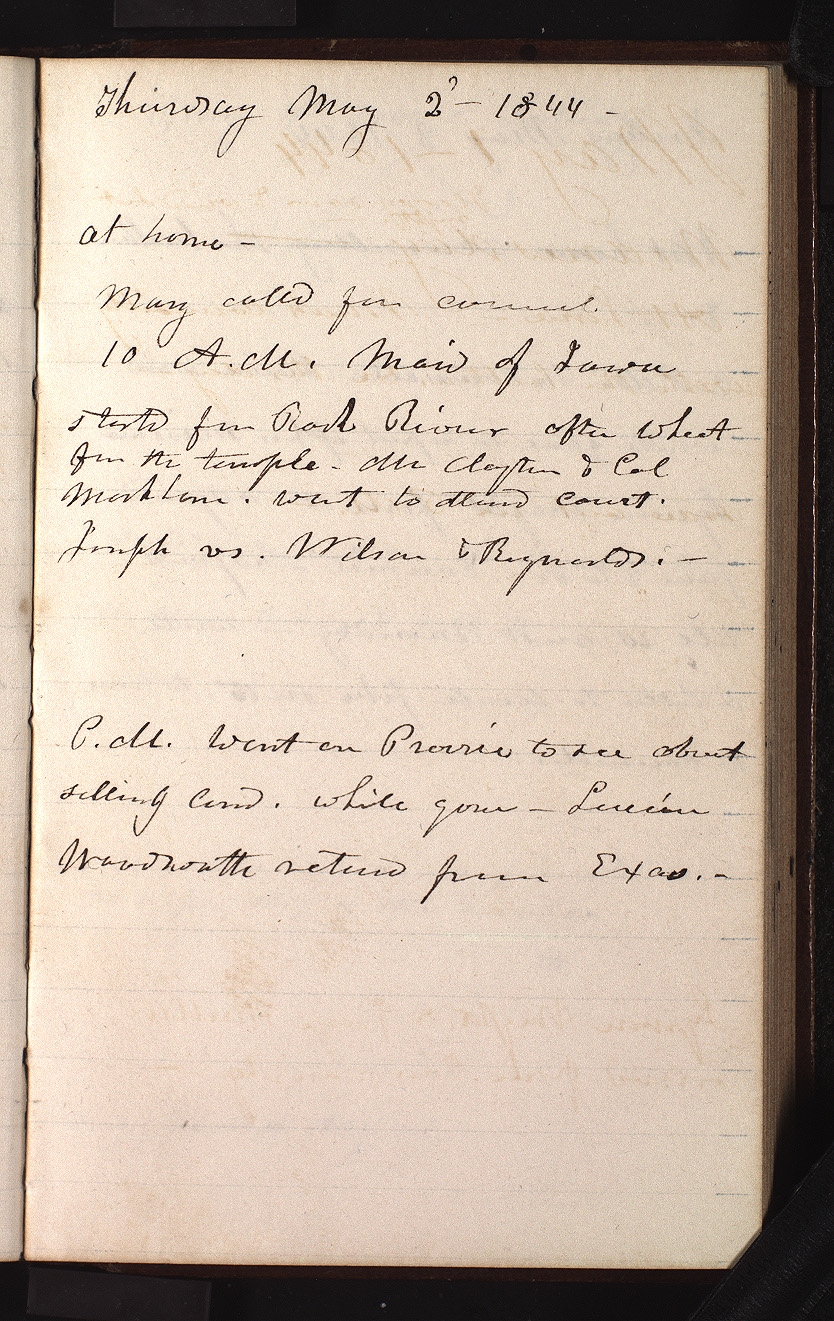 Thursday May 2d — 1844 —
at home —
Many calld for council
10 A.M. Maid of Iowa
startd for Rock River after wheat
for the temple — Mr Clayton & Col
Markham. went to attend court.
Joseph vs. Wilson & Reynolds. —
P.M. Went on Prairie to see about
selling land. while gone — Lucien
Woodworth returnd from Exas. —